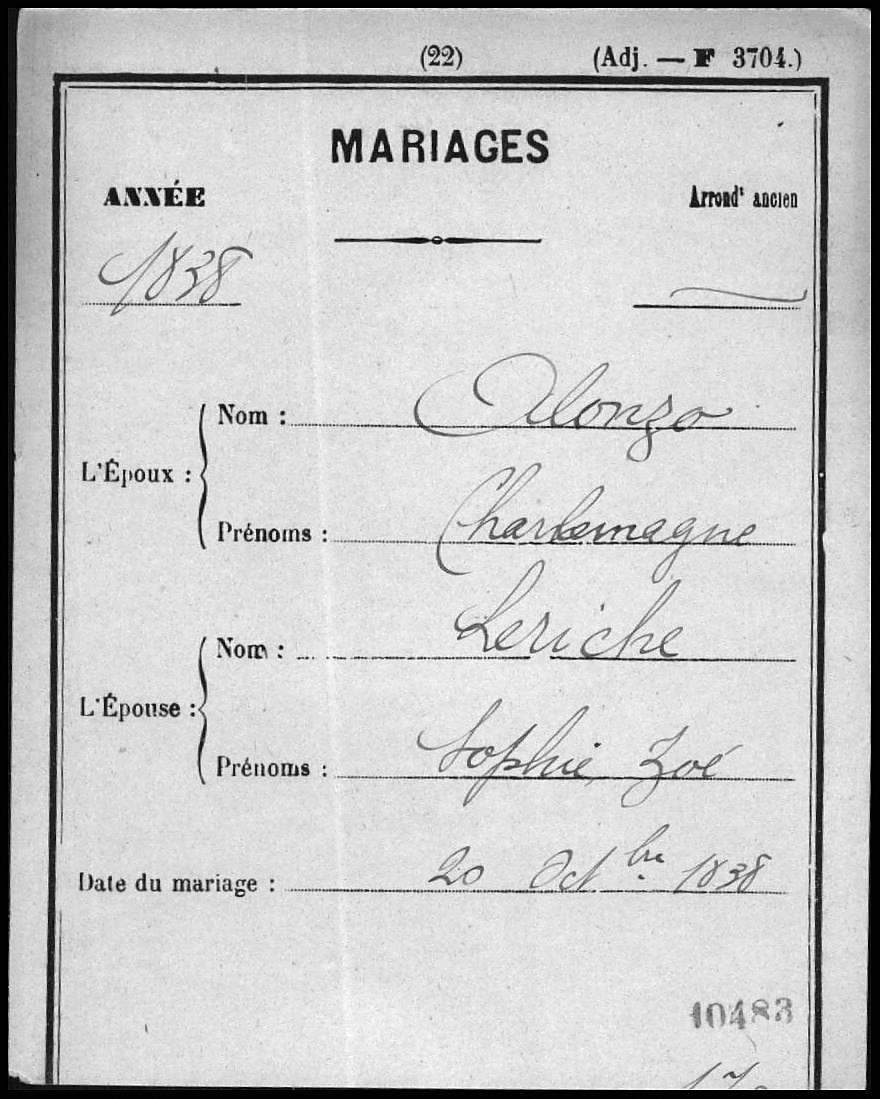 (22) (Adj. — F 3704.)
MARIAGES
ANNÉE Arrondt ancien
1838
L'Époux : Nom : Alonzo
Prénoms : Charlemagne
L'Épouse : Nom : Leriche
Prénoms : Sophie, Zoé
Date du mariage : 20 Octbre 1838
10483